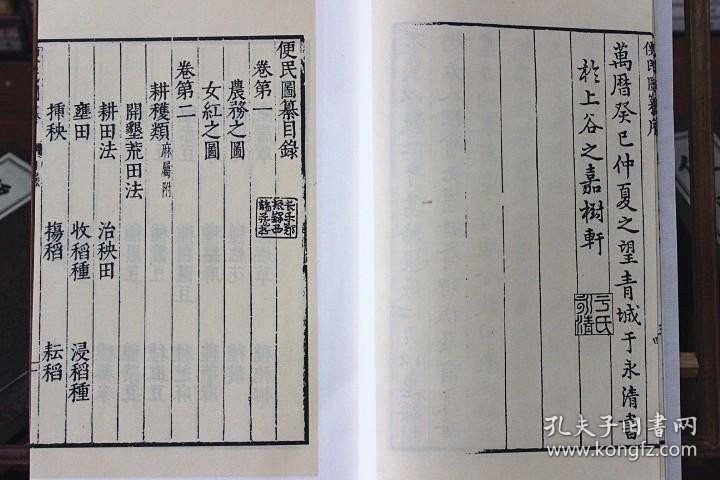 萬曆癸巳仲夏之望青城于永清書
於上谷之嘉樹軒
于氏
永清
便民圖纂目錄
卷第一
農務之圖
女紅之圖
卷第二
耕穫類 麻屬附
開墾荒田法
耕田法 治秧田
壅田 收稻種 浸稻種
插秧 揚稻 耘稻
長樂鄭
振鐸西
諦藏書
孔夫子旧书网
www.kongfz.com